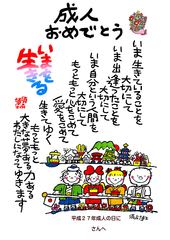 成人
おめでとう
いま生きていることを
大切にして
いま出逢うことを
大切にして
いま自分という人間を
大切にして
もっともっと心をこめて
愛をこめて
生きてゆく
もっともっと
大きな愛ある力ある
わたしになってゆきます
いまを
生きる
平成27年成人の日に
さんへ